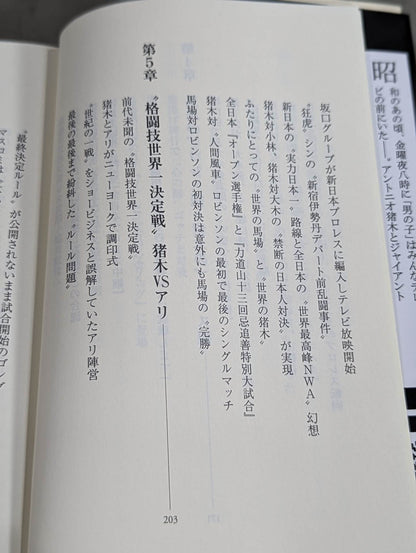 昭
和のあの頃、金曜夜八時に「男の子」はみんなテ
ビの前にいた――。アントニオ猪木とジャイアント
坂口グループが新日本プロレスに編入しテレビ放映開始
〝狂虎〟シンの〝新宿伊勢丹デパート前乱闘事件〟
新日本の〝実力日本一〟路線と全日本の〝世界最高峰NWA〟幻想
猪木対小林、猪木対大木の〝禁断の日本人対決〟が実現
ふたりにとっての〝世界の馬場〟と〝世界の猪木〟
全日本『オープン選手権』と『力道山十三回忌追善特別大試合』
猪木対〝人間風車〟ロビンソンの最初で最後のシングルマッチ
馬場対ロビンソンの初対決は意外にも馬場の〝完勝〟
第5章
〝格闘技世界一決定戦〟猪木VSアリ
203
前代未聞の〝格闘技世界一決定戦〟
猪木とアリがニューヨークで調印式
〝世紀の一戦〟をショービジネスと誤解していたアリ陣営
最後の最後まで紛糾した〝ルール問題〟
〝最終決定ルール〟が公開されないまま試合開始のゴング